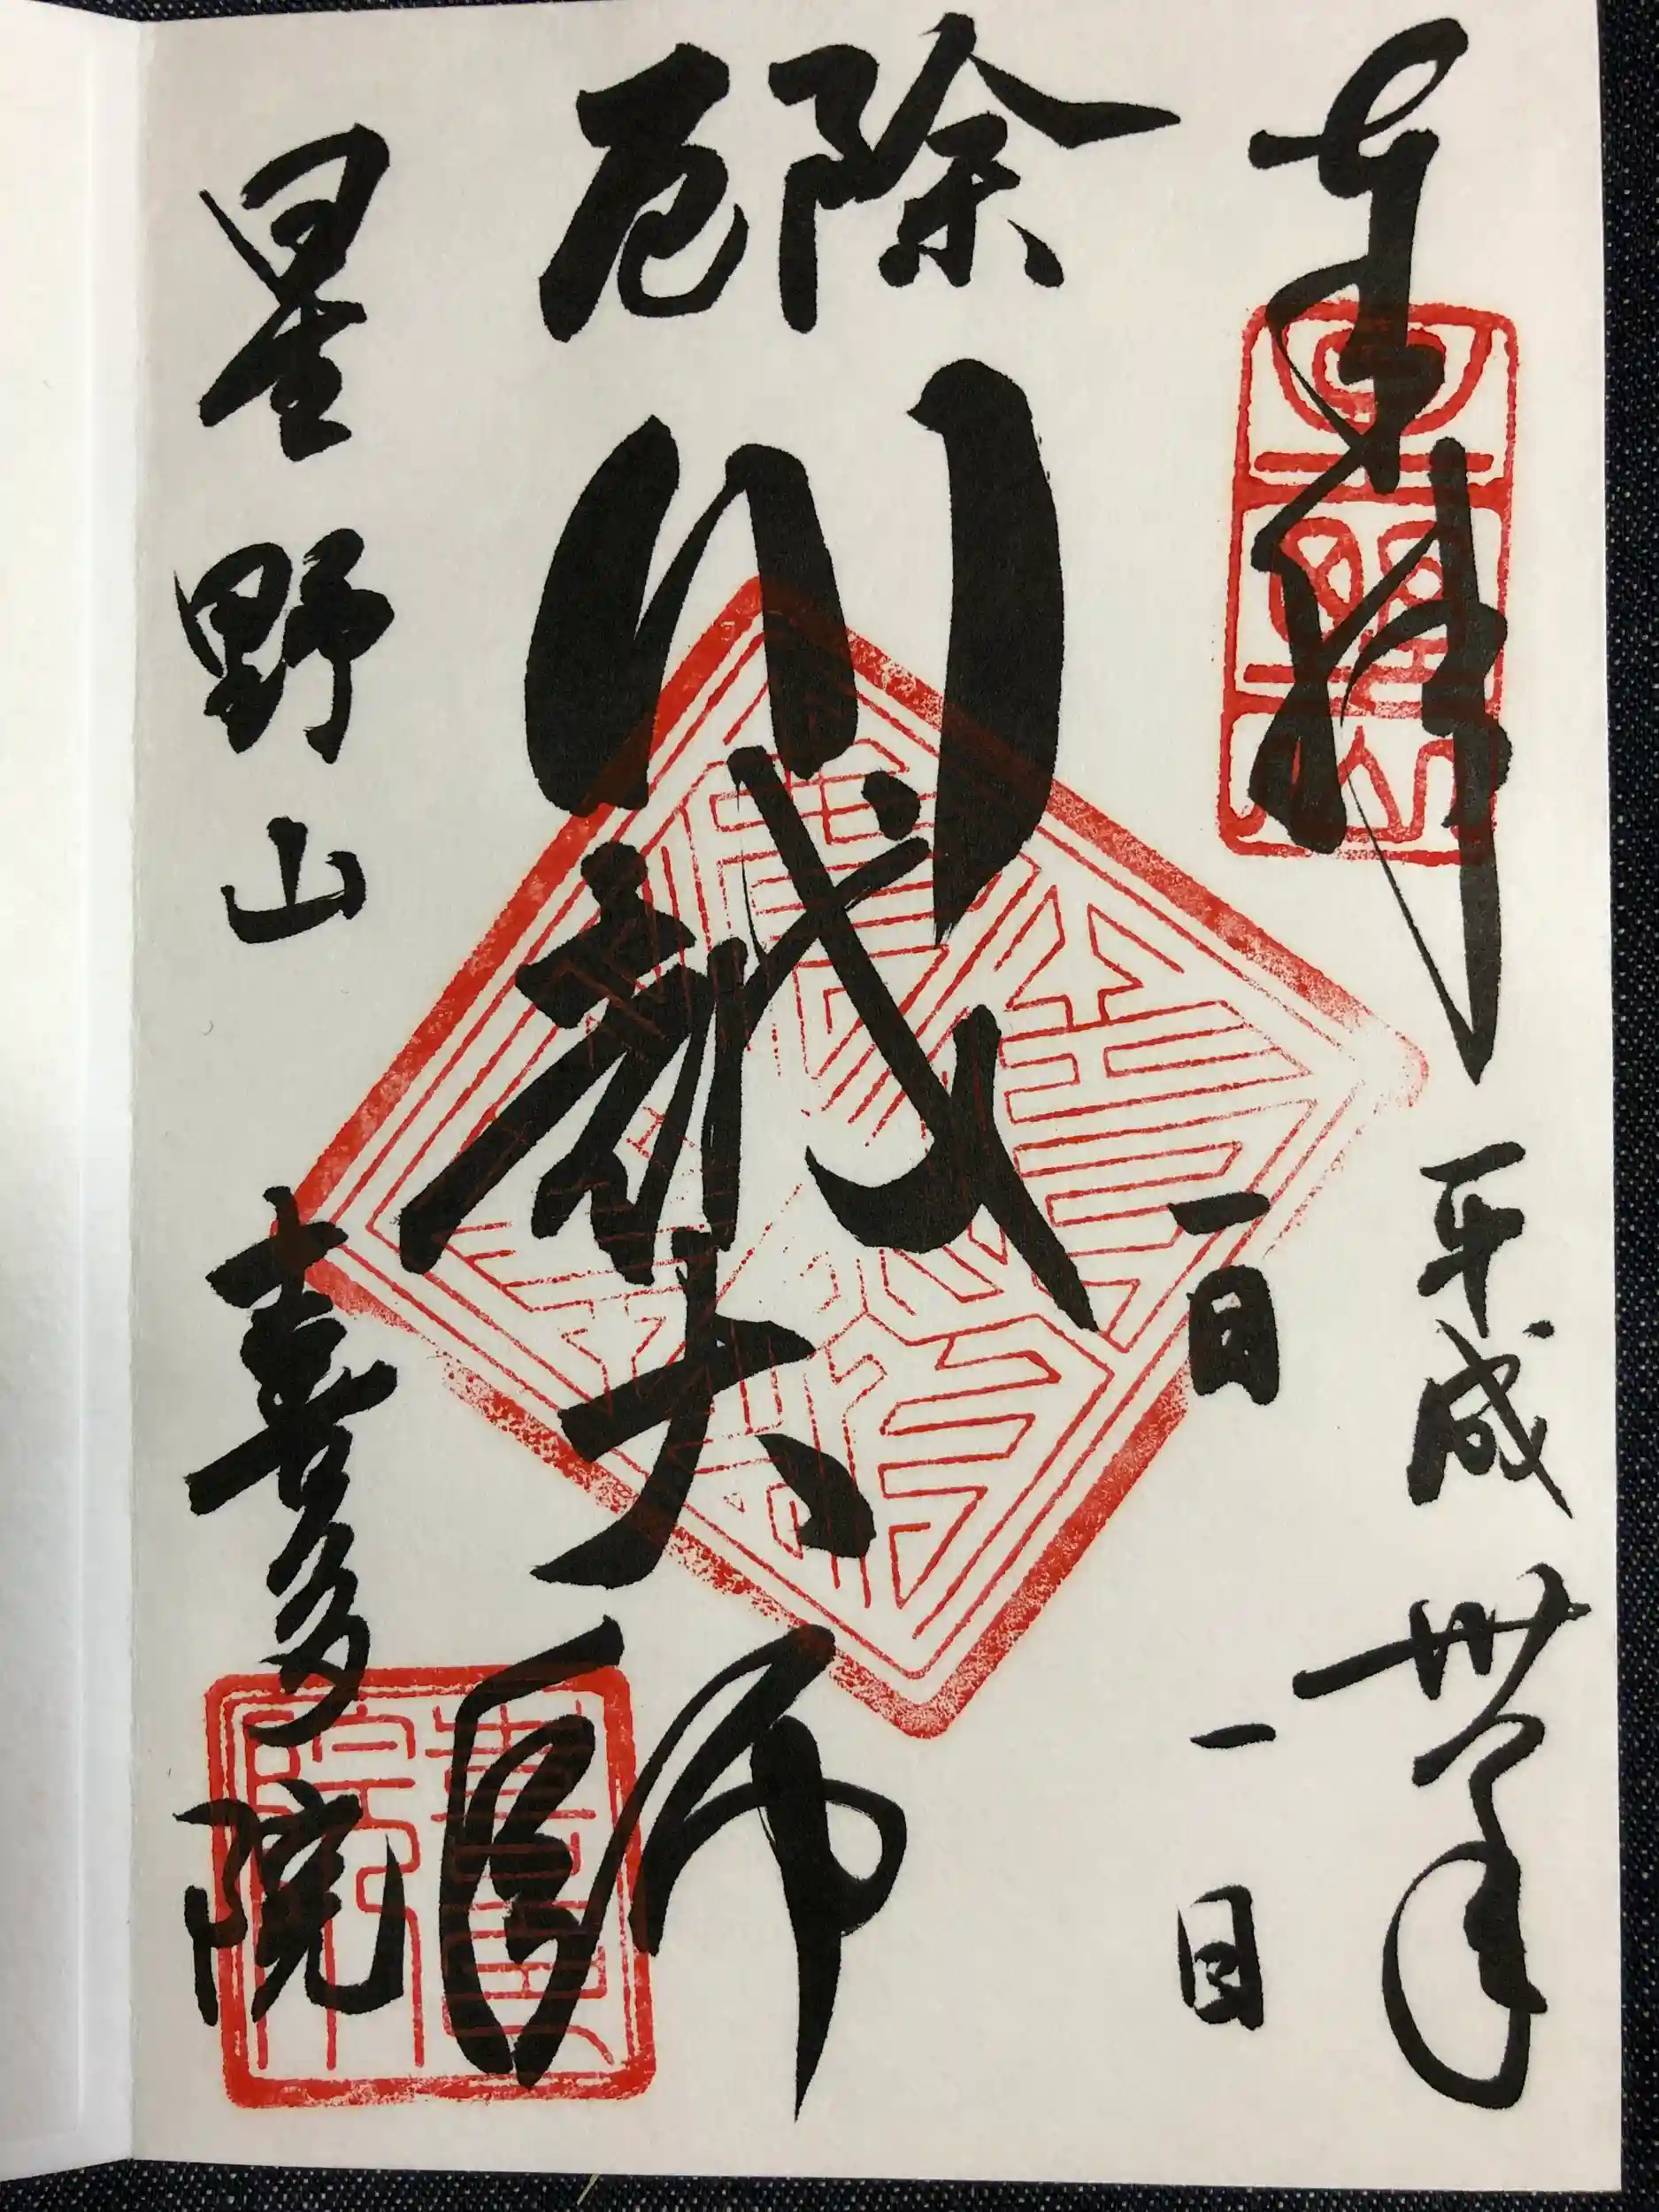 奉拝 平成卅年
一月一日
厄除
川越大師
星野山 喜多院